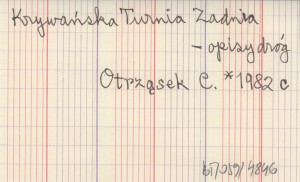 Krywańska Turnia Zadnia
- opisy dróg
Otrząsek C. *1982 c
bT/059/4846